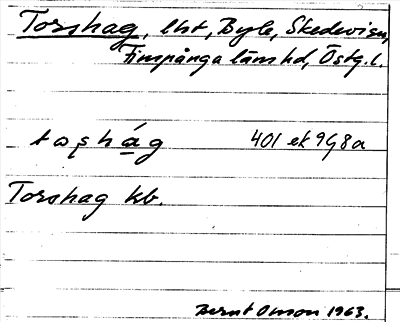 Torshag, lht, Byle, Skedevi sn,
Finspånga läns hd, Östg. l.
toʂhág 401 ek 9g8a
Torshag kb.
Bernt Oman 1963.